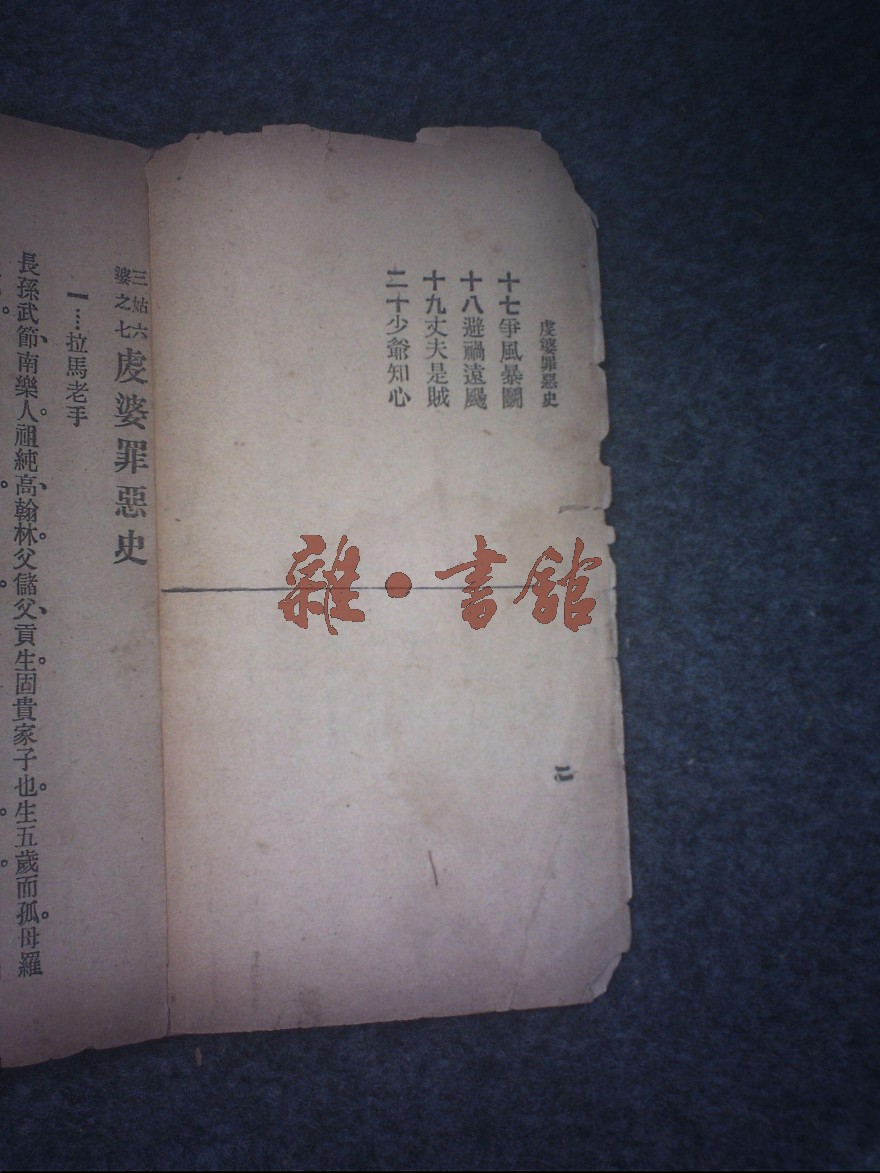 虔婆罪惡史
十七爭風暴鬭
十八避禍遠颺
十九丈夫是賊
二十少爺知心
二
雜·書館
三姑六婆之七虔婆罪惡史
一…拉馬老手
長孫武節、南樂人。祖純高、翰林。父儲父、貢生。固貴家子也。生五歲而孤。母羅